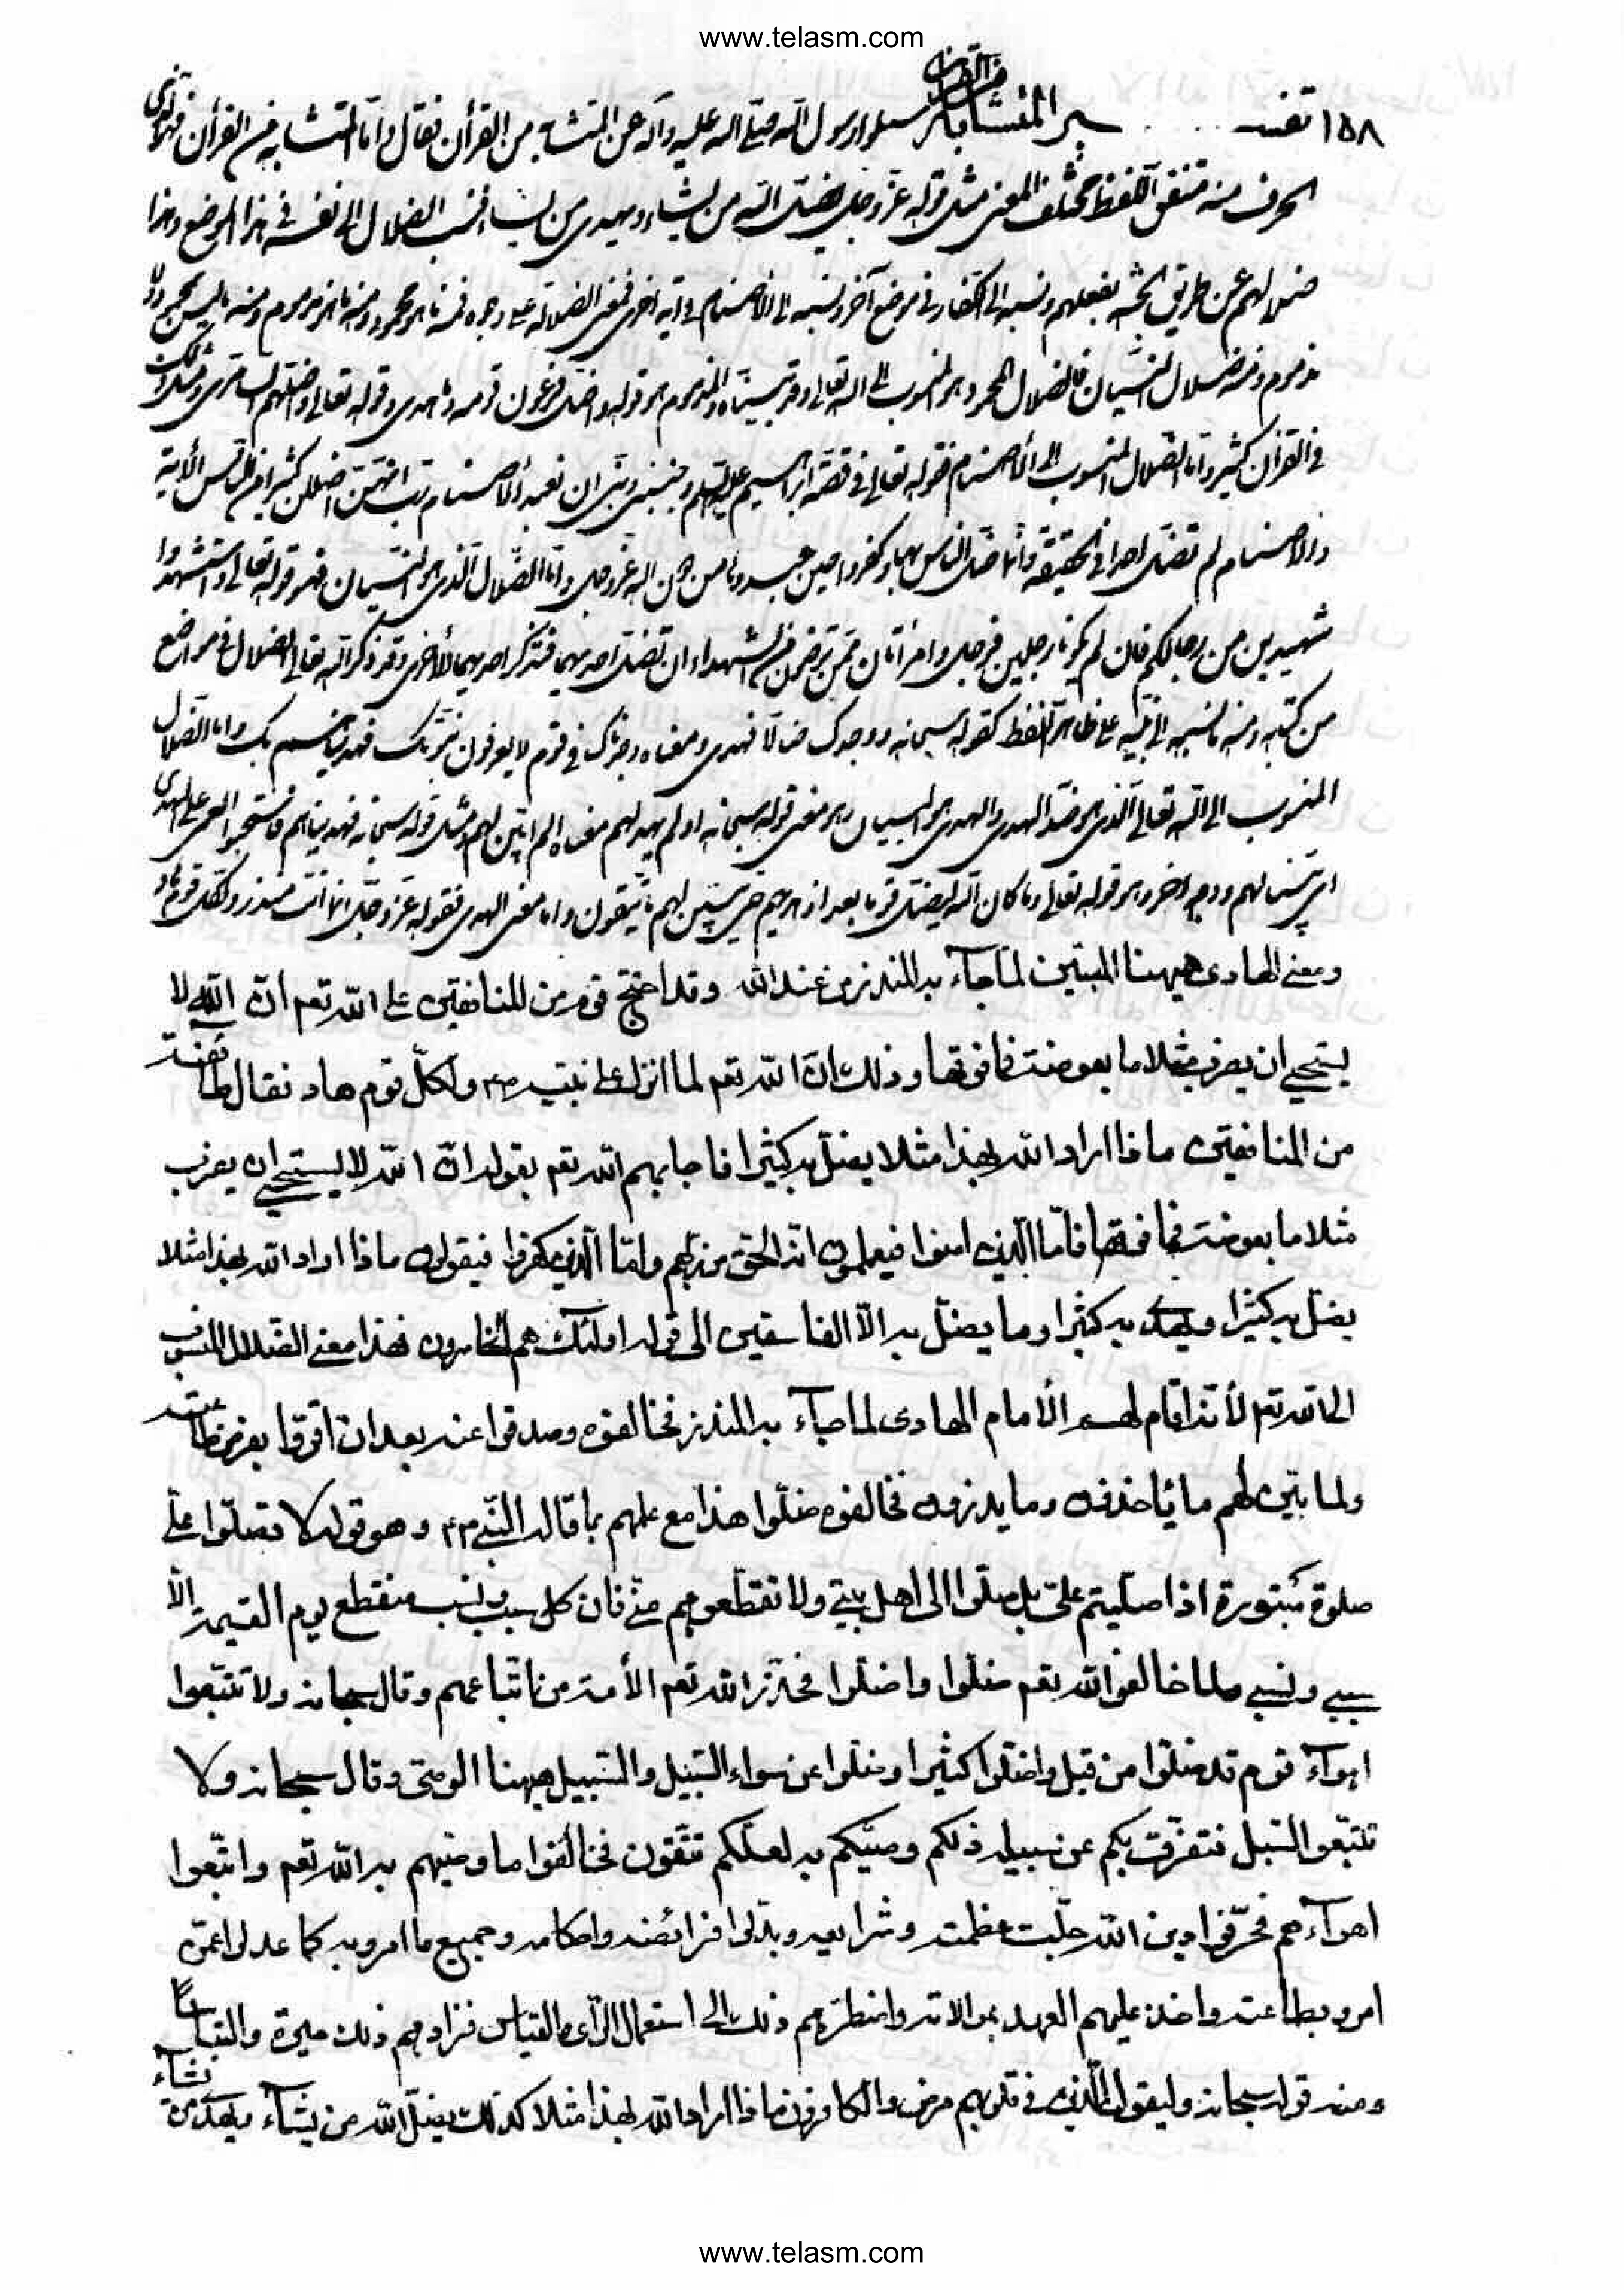 www.telasm.com
من القران
١٥٨ تفسير المتشابه سئلوا رسول الله صلى الله عليه وآله عن المتشابه من القرأن فقال واما المتشابه من القرأن فهو الذى
انحرف منه متفق اللفظ مختلف المعنى مثل قوله عز وجل يضل الله من يشاء ويهدى من يشاء فنسب الضلال الى نفسه فى هذا الموضع وهذا
ضلالهم عن طريق الجنة بفعلهم ونسبه الى الكفار فى موضع آخر ونسبه الى الاصنام فى آية اخرى فمعنى الضلالة على وجوه فمنه ما هو محمود ومنه ما هو مذموم ومنه ما ليس بمحمود ولا
مذموم ومنه ضلال النسيان فالضلال المحمود هو المنسوب الى الله تعالى وقد بيناه والمذموم هو قوله واضل فرعون قومه وما هدى وقوله تعالى واضلهم السامرى ومثل ذلك
فى القرآن كثير واما الضلال المنسوب الى الأصنام فقوله تعالى فى قصة ابراهيم عليه السلم واجنبنى وبنى ان نعبد الأصنام رب انهن اضللن كثيرا من الناس الأية
والاصنام لم تضلل احدا فى الحقيقة وانما ضل الناس بها وكفروا حين عبدوها من دون الله عز وجل واما الضلال الذى هو النسيان فهو قوله تعالى واستشهدوا
شهيدين من رجالكم فان لم يكونا رجلين فرجل وامرأتان ممن ترضون من الشهداء ان تضل احديهما فتذكر احديهما الأخرى وقد ذكر الله تعالى الضلال فى مواضع
من كتابه ومنه ما نسبه الى نبيه على ظاهر اللفظ كقوله سبحانه ووجدك ضالا فهدى ومعناه وجدناك فى قوم لا يعرفون نبوتك فهديناهم بك واما الضلال
المنسوب الى الله تعالى الذى هو ضد الهدى والهدى هو البيان وهو معنى قوله سبحانه او لم يهد لهم معناه الم ابين لهم ومثل قوله سبحانه فهديناهم فاستحبوا العمى على الهدى
اى بينا لهم ووجه اخر وهو قوله تعالى وما كان الله ليضل قوما بعد اذ هديهم حتى يبين لهم ما يتقون واما معنى الهدى فقوله عز وجل انما انت منذر ولكل قوم هاد
ومعنى الهادى هيهنا المبين لما جاء به المنذر من عند الله وقد احتج قوم من المنافقين على الله تعم ان الله لا
يستحيى ان يضرب مثلا ما بعوضة فما فوقها وذلك ان الله تعم لما انزل على نبيه ص ولكل قوم هاد فقال طائفة
من المنافقين ماذا اراد الله بهذا مثلا يضل به كثيرا فاجابهم الله تعم بقوله ان الله لا يستحيى ان يضرب
مثلا ما بعوضة فما فوقها فاما الذين امنوا فيعلمون انه الحق من ربهم واما الذين كفروا فيقولون ماذا اراد الله بهذا مثلا
يضل به كثيرا ويهدى به كثيرا وما يضل به الا الفاسقين الى قوله اولئك هم الخاسرون فهذا معنى الضلال المنسوب
الى الله تعم لأنه اقام لهم الأمام الهادى لما جاء به المنذر فخالفوه وصدفوا عنه بعد ان اقروا بفرض طاعته
ولما بين لهم ما يأخذون وما يذرون فخالفوه ضلوا هذا مع علمهم بما قاله النبى ص وهو قوله لا تصلوا على
صلوة مبتورة اذا صليتم على بل صلوا الى اهل بيتى ولا تقطعوهم منى فان كل سبب ونسب منقطع يوم القيمة الا
سببى ونسبى ولما خالفوا الله تعم ضلوا واضلوا فحذر الله تعم الأمة من اتباعهم وقال سبحانه ولا تتبعوا
اهواء قوم قد ضلوا من قبل واضلوا كثيرا وضلوا عن سواء السبيل والسبيل هيهنا الوصى وقال سبحانه ولا
تتبعوا السبل فتفرقت بكم عن سبيله ذلكم وصيكم به لعلكم تتقون فخالفوا ما وصيهم به الله تعم واتبعوا
اهواءهم فحرفوا دين الله جلت عظمته وشرايعه وبدلوا فرائضه واحكامه وجميع ما امروا به كما عدلوا عمن
امروا بطاعته واخذ عليهم العهد بموالاته واضطرهم ذلك الى استعمال الرأى والقياس فزادهم ذلك حيرة والتباسا
ومنه قوله سبحانه وليقول الذين فى قلوبهم مرض والكافرون ماذا اراد الله بهذا مثلا كذلك يضل الله من يشاء ويهدى من يشاء
www.telasm.com